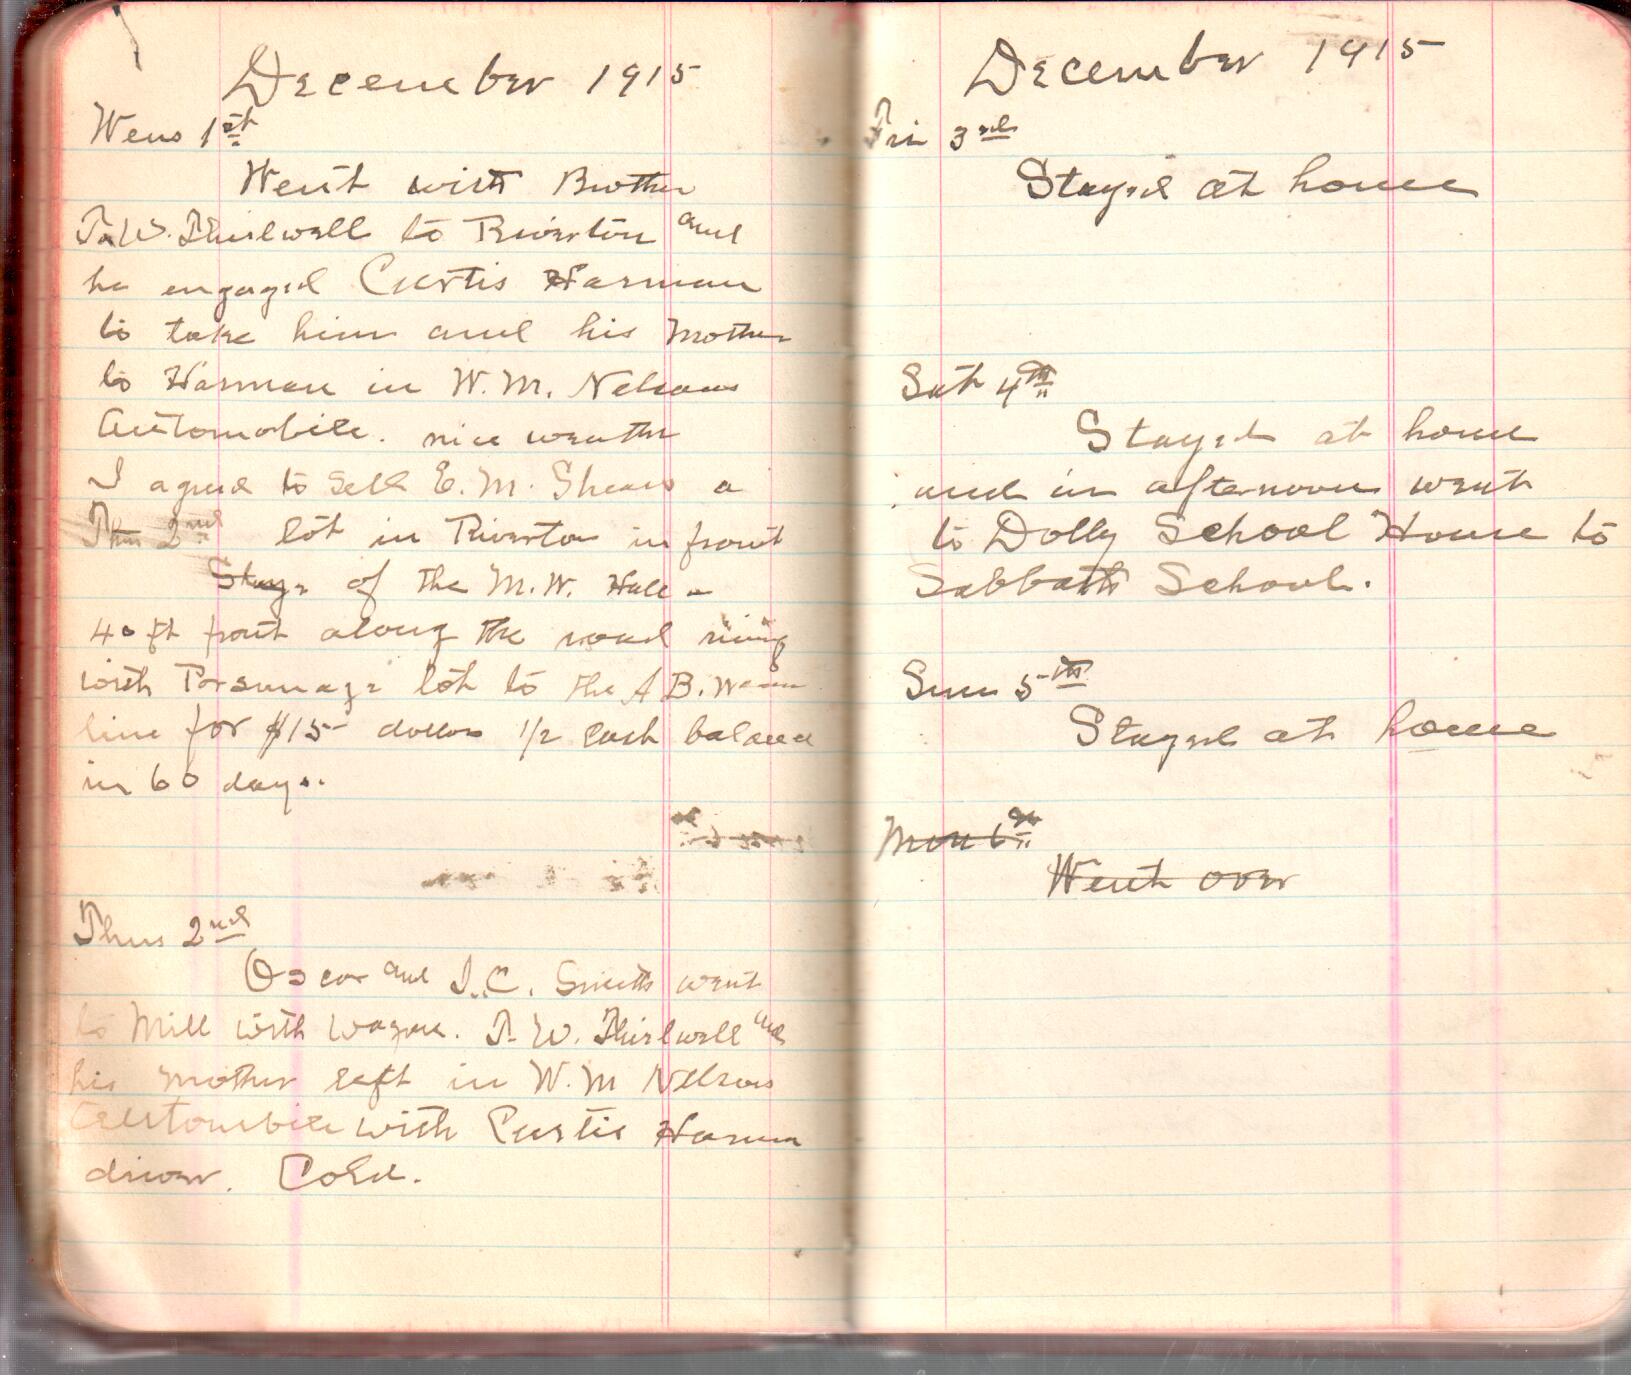 December 1915
Wens 1st
Went with Brother
T.W. Thirlwall to Riverton and
he engaged Curtis Harman
to take him and his Mother
to Harman in W.M. Nelsons
Automobile. nice weather
I agreed to sell E.M. Shears a
Thu 2nd lot in Riverton in front
Stay of the M.W. Hall
40 ft front along the road
with Parsunage lot to the A B.
line for $15 dollars 1/2 cash balance
in 60 days.
Thus 2nd
Oscar and I.C. Smith went
to Mill with wagon. T. W. Thirlwall and
his Mother left in W.M Nelsons
Automobile with Curtis Harman
driver. Cold.
December 1915
Fri 3rd
Stayed at home
Sat 4th
Stayed at home
and in afternoon went
to Dolly School House to
Sabbath School.
Sun 5th
Stayed at home
Mon 6th
Went over